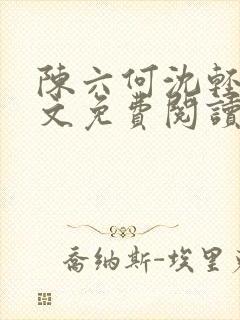 陳六何沈輕
文免費閱讀
喬納斯-埃里